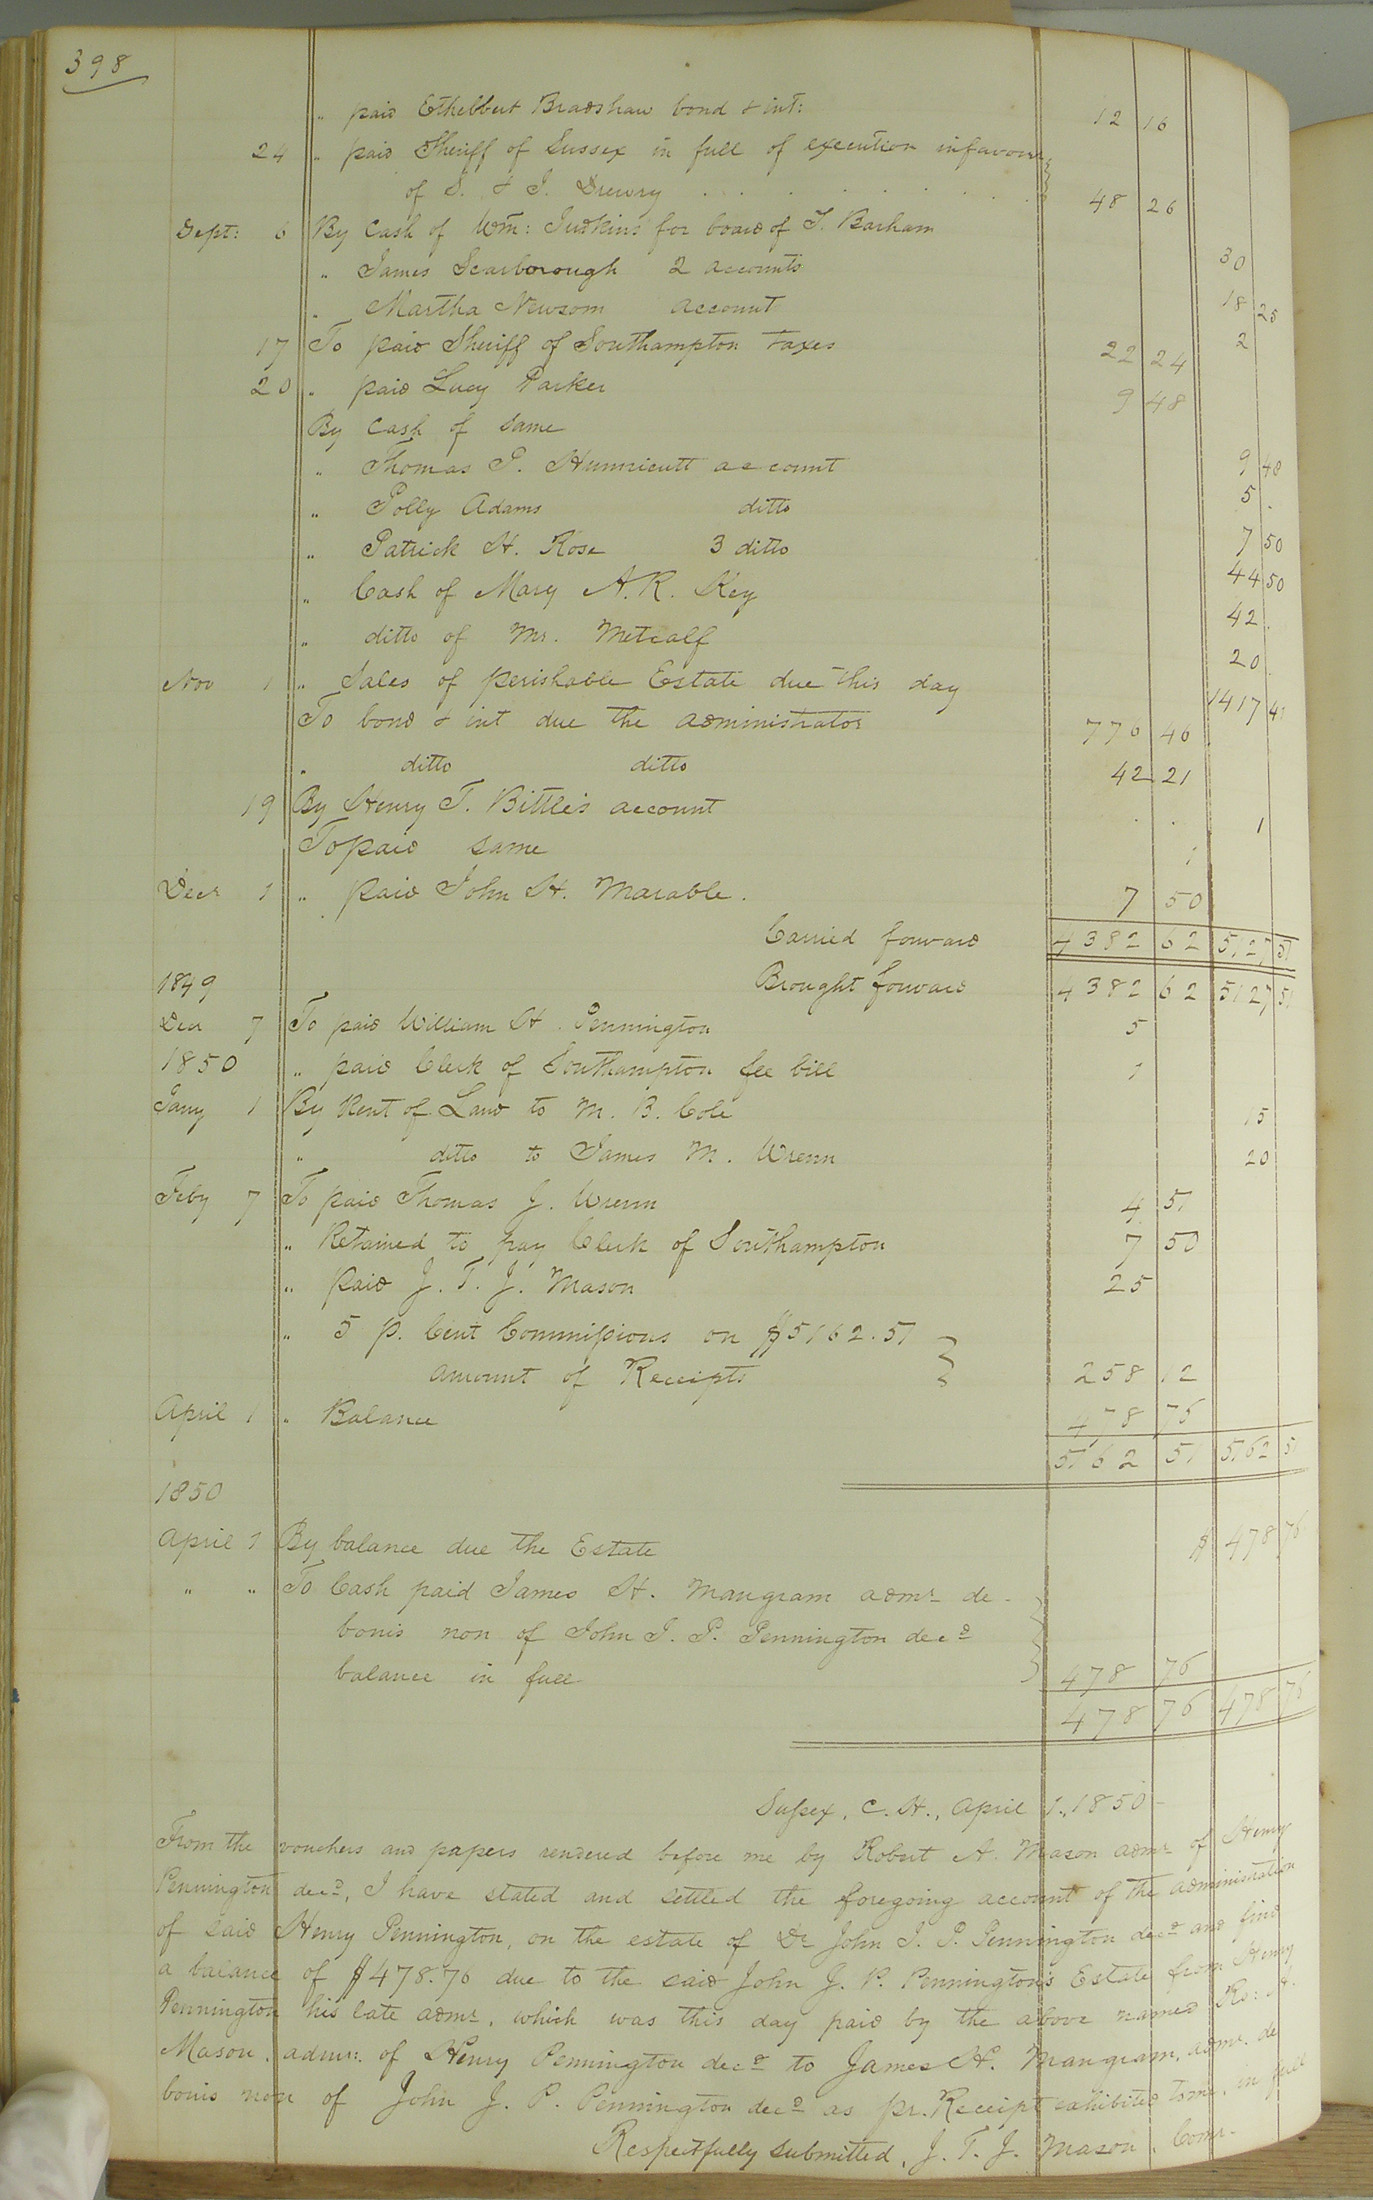 398
" paid Ethelbert Bradshaw bond & int: 12 16
24 " paid Sheriff of Sussex in full of execution infavour
of S. & J. Drewry . . . . . . . 48 26
Sept: 6 By Cash of Wm: Judkins for board of T. Barham 30
" James Scarborough 2 accounts 18 25
" Martha Newsom account 2
17 To paid Sheriff of Southampton taxes 22 24
20 " paid Lucy Parker 9 48
By Cash of same 9 48
" Thomas P. Hunnicutt account 5 .
" Polly Adams ditto 7 50
" Patrick H. Rose 3 ditto 44 50
" Cash of Mary A. R. Key 42 .
" ditto of Mr. Metcalf 20
Nov 1 " Sales of perishable Estate due this day 1417
To bond & int due the administrator 776 46
" ditto ditto 42 21
19 By Henry T. Bittle's account 1
To paid same 1
Decr 1 " paid John H. Marable. 7 50
Carried forward 4382 62 5127 51
1849 Brought forward 4382 62 5127 51
Decr 7 To paid William H. Pennington 5
1850 " paid Clerk of Southampton fee bill 1
Jany 1 By Rent of Land to M. B. Cole 15
" ditto to James M. Wrenn 20
Feby 7 To paid Thomas J. Wrenn 4 51
" Retained to pay Clerk of Southampton 7 50
" paid J. T. J. Mason 25
" 5 p. Cent Commissions on $5162.51
amount of Receipts 258 12
April 1 " Balance 478 76
5162 51 5162 51
1850
April 1 By balance due the Estate $ 478 76
" " To Cash paid James H. Mangram admr de
bonis non of John J. P. Pennington decd
balance in full 478 76
478 76 478 76
Sussex, C. H., April 1., 1850
From the vouchers and papers rendered before me by Robert A. Mason admr of Henry
Pennington decd, I have stated and settled the foregoing account of the administration
of said Henry Pennington, on the estate of Dr John J. P. Pennington decd and find
a balance of $478.76 due to the said John J. P. Pennington's Estate from Henry
Pennington his late admr, which was this day paid by the above named Ro: A.
Mason, admr. of Henry Pennington decd to James H. Mangram, admr. de
bonis non of John J. P. Pennington decd as pr. Receipt exhibited to me, in full
Respectfully submitted, J. T. J. Mason, Comr.